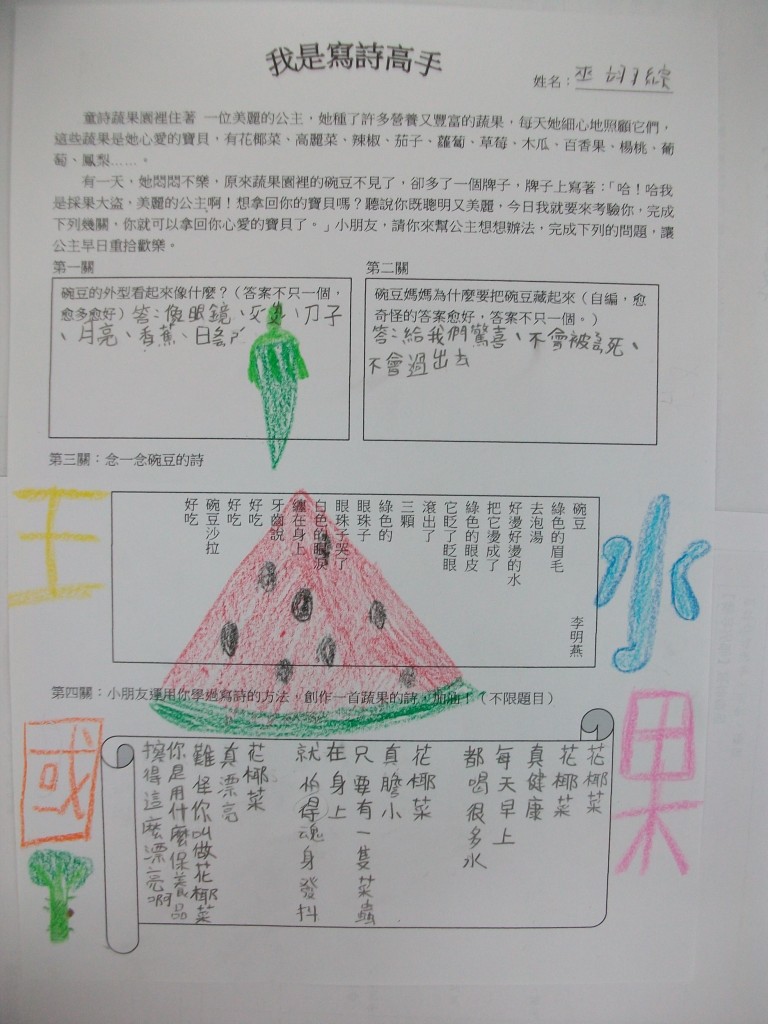 我是寫詩高手
姓名：巫
童詩蔬果園裡住著 一位美麗的公主，她種了許多營養又豐富的蔬果，每天她細心地照顧它們，
這些蔬果是她心愛的寶貝，有花椰菜、高麗菜、辣椒、茄子、蘿蔔、草莓、木瓜、百香果、楊桃、葡
萄、鳳梨……。
有一天、她悶悶不樂，原來蔬果園裡的碗豆不見了，卻多了一個牌子，牌子上寫著：「哈！哈我
是採果大盜，美麗的公主啊！想拿回你的寶貝嗎？聽說你既聰明又美麗，今日我就要來考驗你，完成
下列幾關，你就可以拿回你心愛的寶貝了。」小朋友，請你來幫公主想想辦法，完成下列的問題，讓
公主早日重拾歡樂。
第一關
碗豆的外型看起來像什麼？（答案不只一個，
愈多愈好）答：像眼鏡、、刀子
、月亮、香蕉、
第二關
碗豆媽媽為什麼要把碗豆藏起來（自編，愈
奇怪的答案愈好，答案不只一個。）
答：給我們驚喜、不會被死、
不會過出去
第三關：念一念碗豆的詩
碗豆
李明燕
綠色的眉毛
去泡湯
好燙好燙的水
把它燙成了
綠色的眼皮
它眨了眨眼
滾出了
三顆
綠色的
眼珠子
眼珠子哭了
白色的眼淚
纏在身上
牙齒說
好吃
好吃
碗豆沙拉
好吃
第四關：小朋友運用你學過寫詩的方法，創作一首蔬果的詩，加油！（不限題目）
花椰菜
花椰菜
真健康
每天早上
都喝很多水
花椰菜
真膽小
只要有一隻菜蟲
在身上
就怕得魂身發抖
花椰菜
真漂亮
難怪你叫做花椰菜
你是用什麼保養品
擦得這麼漂亮啊
水
果
王
國